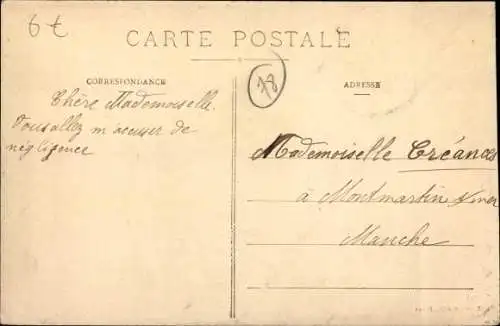 6 €
CARTE POSTALE
78
CORRESPONDANCE
ADRESSE
Chère Mademoiselle.
Vous allez m'accuser de
négligence
Mademoiselle Créances
à Montmartin s/mer
Manche